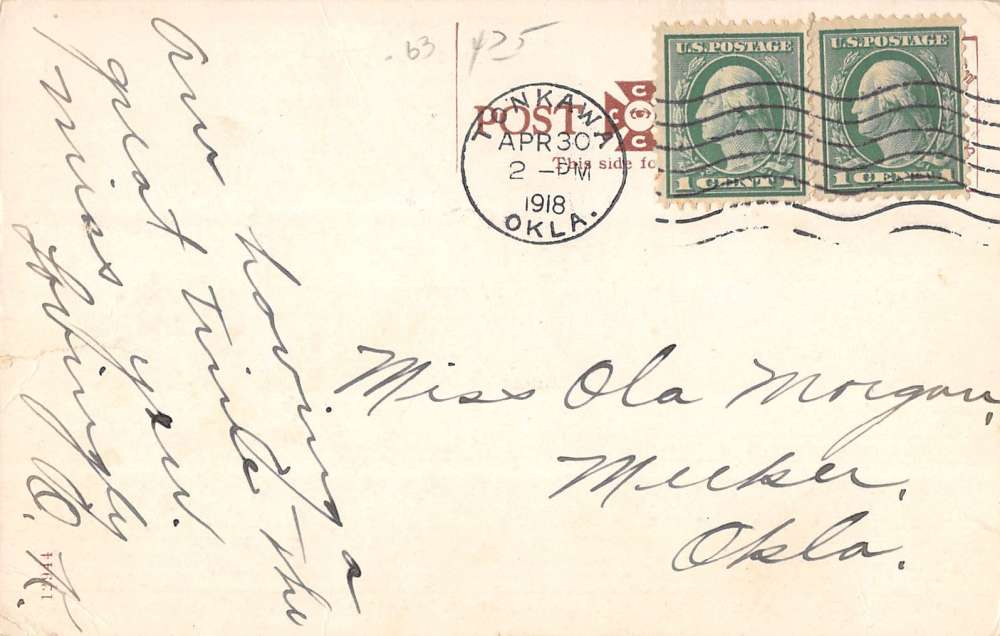 .63 425
U.S.POSTAGE
1 CENT 1
U.S.POSTAGE
1 CENT 1
POST
This side fo
TONKAWA
APR 30
2 -PM
1918
OKLA.
Am having a
great time - tho
miss you.
Lovingly
Miss Ola Morgan,
Meeker,
Okla.